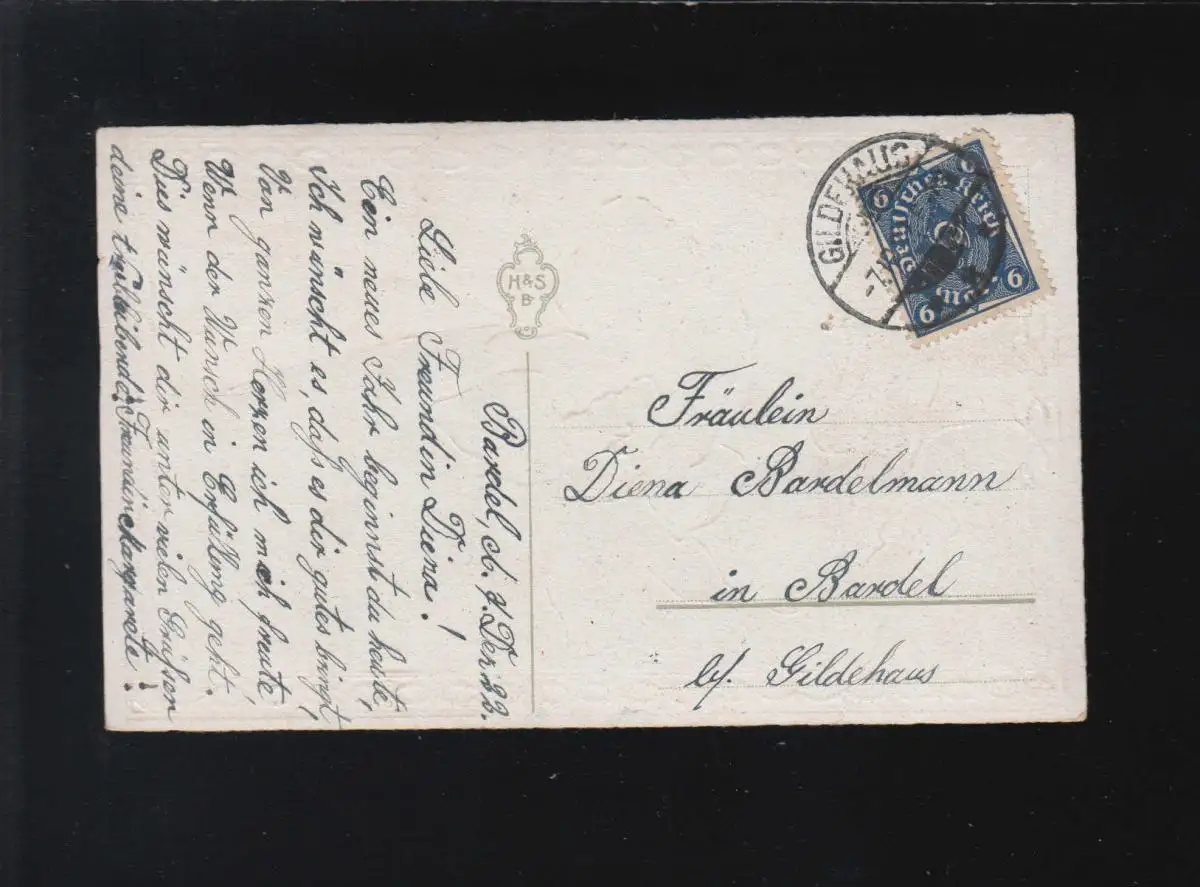 Bardel, d. 7. Dez. 22.
Liebe Freundin Diena!
Ein neues Jahr beginnst du heute,
Ich wünscht es, daß es dir gutes bringt,
Von ganzen Herzen ich mich freute,
Wenn der Wunsch in Erfüllung geht.
Dies wünscht dir unter vielen Grüßen
deine Freundin Margarete!
H&S
B
GILDEHAUS
Deutsches Reich
6
6
6
6
Mark
Fräulein
Diena Bardelmann
in Bardel
b/ Gildehaus